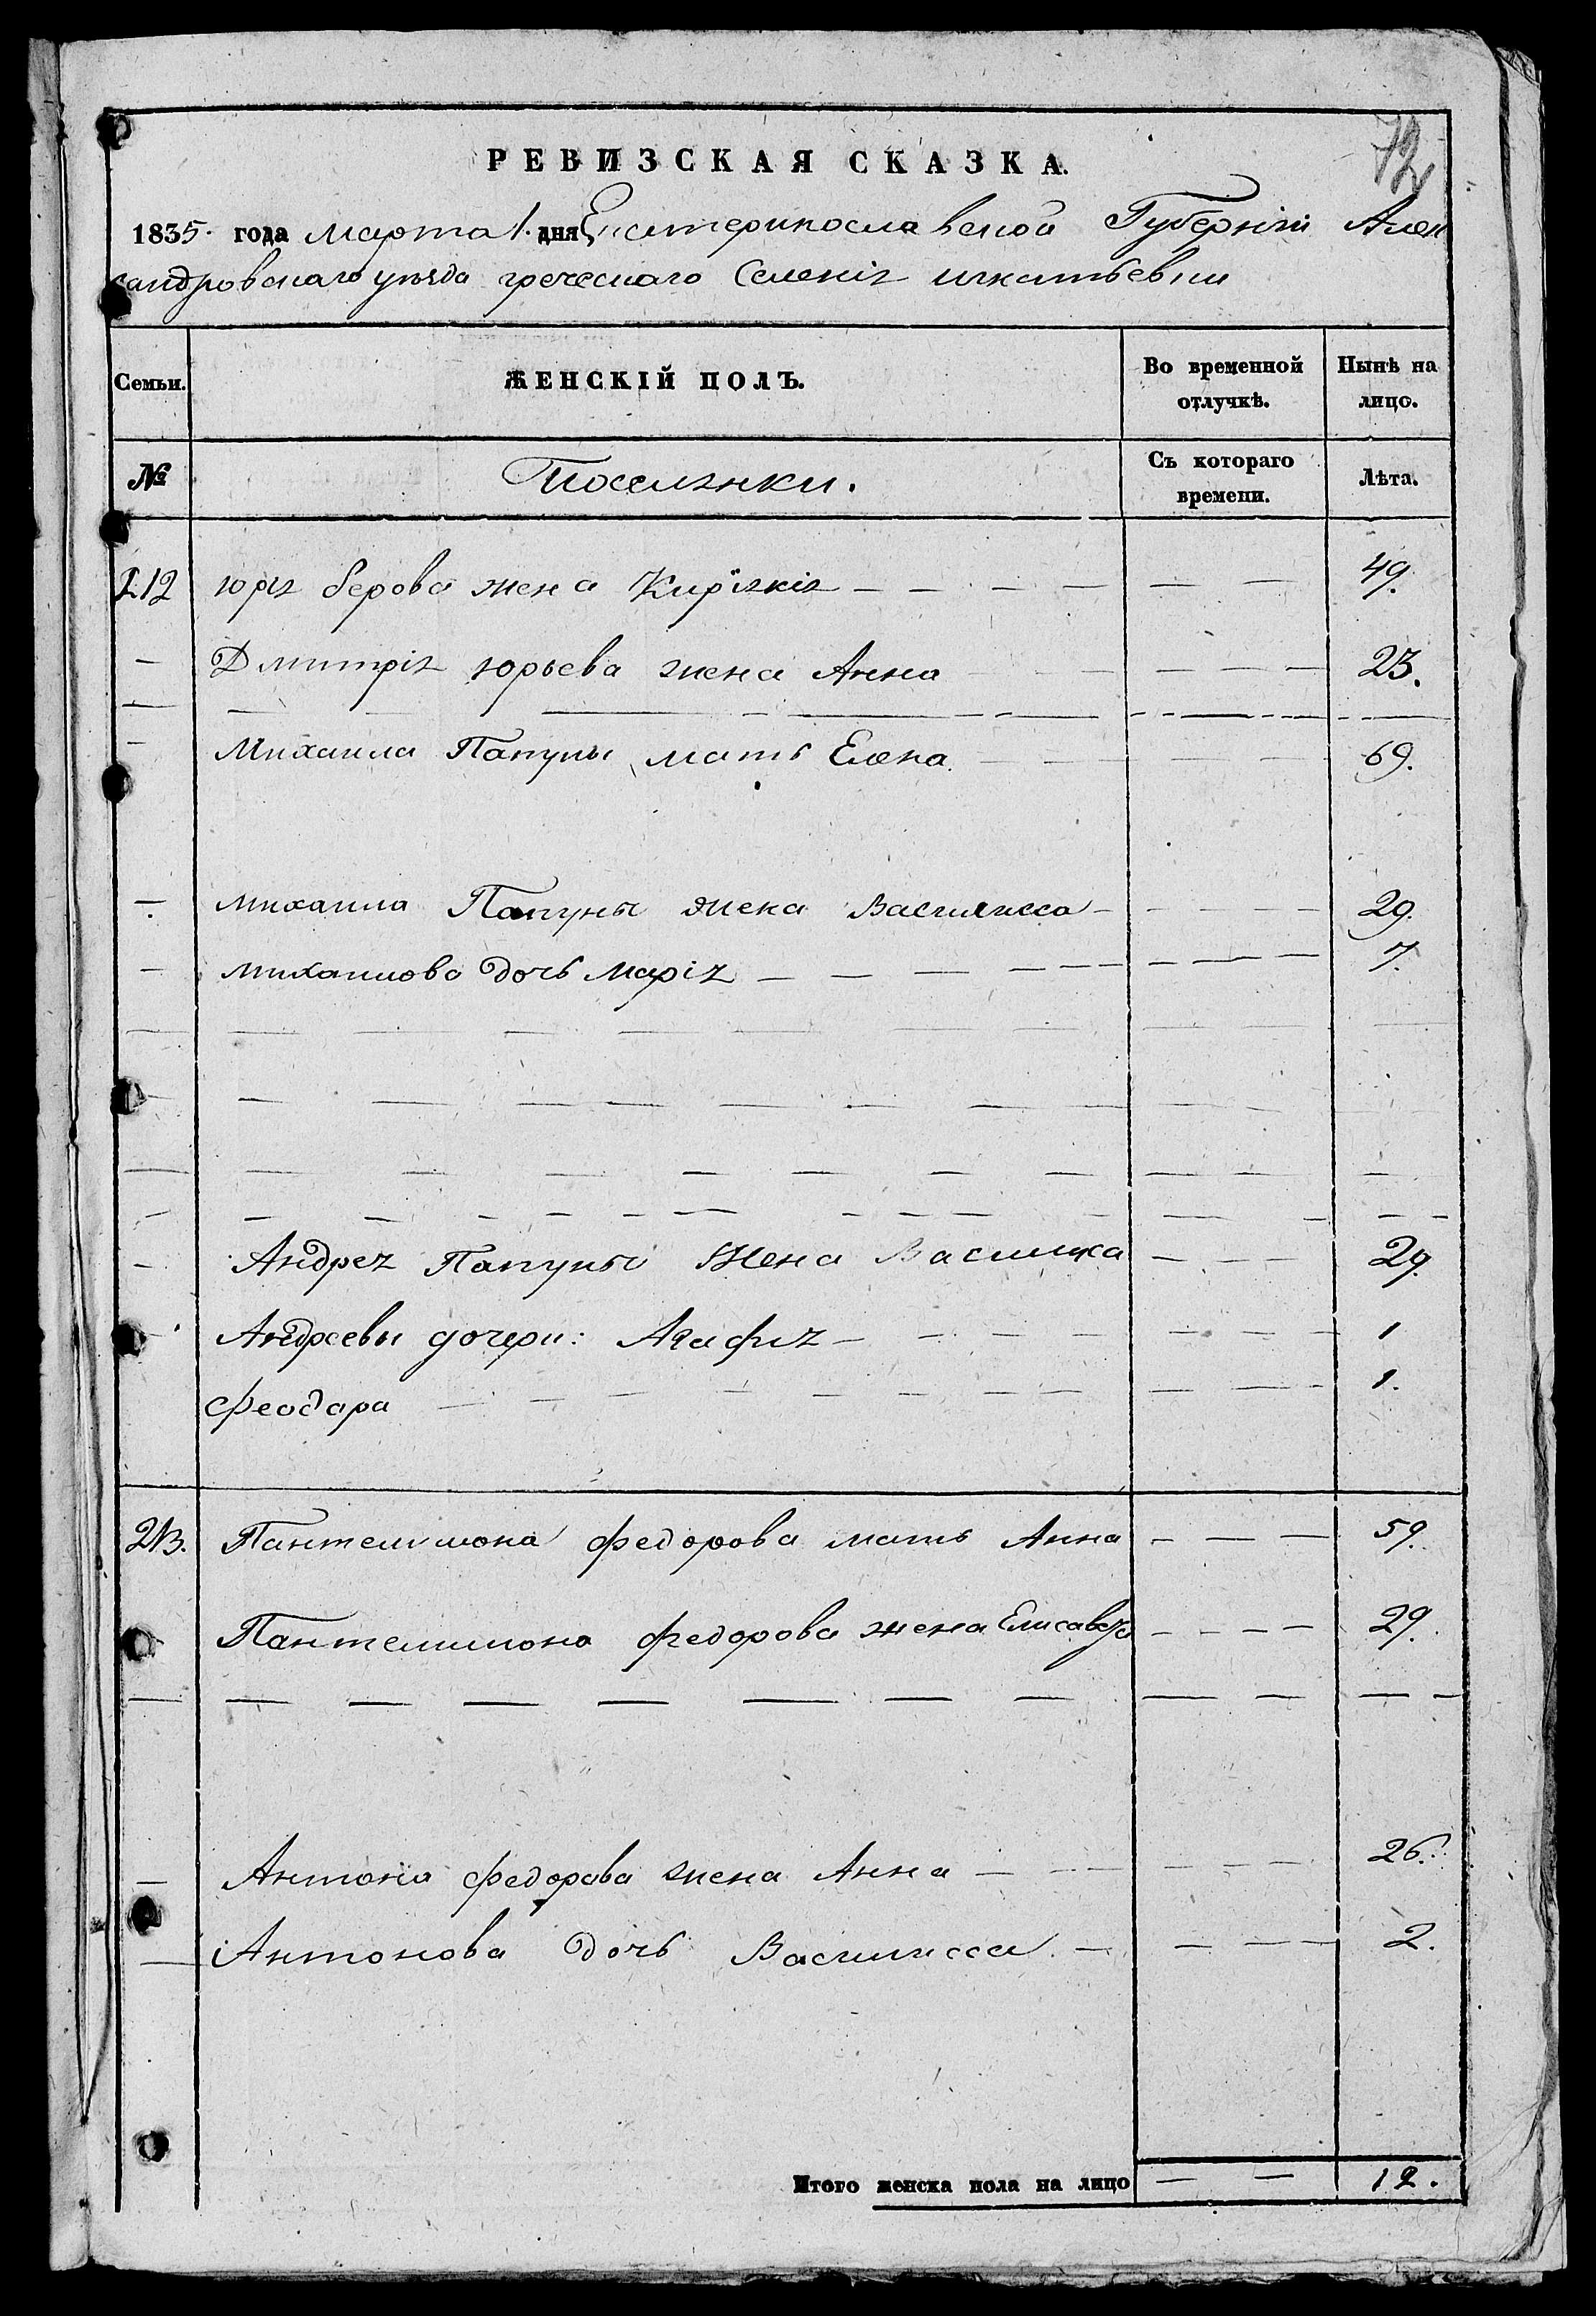 72
РЕВИЗСКАЯ СКАЗКА.
1835. года марта 1. дня Екатеринославской Губерніи Алек
сандровскаго уѣзда греческаго Селенія игнатьевки
Семьи. ЖЕНСКІЙ ПОЛЪ. Во временной отлучкѣ. Нынѣ на лицо.
№ Поселянки. Съ котораго времени. Лѣта.
212 юрія берова жена Киріякія — — — — — — 49.
— Дмитрія юрьева жена Анна — — — — — 23.
— Михаила Папуны мать Елена — — — — 69.
— михаила Папуны жена Василисса — — — — 29.
— михаилова дочь марія — — — — — — 7.
— Андрея Папуны жена Василика — — — 29.
— Андреевы дочери: Агафия — — — — — 1
феодора — — — — — — — 1.
213. Пантелимона федорова мать Анна — — — 59.
Пантелимона федорова жена Елисавета — — — — 29.
— Антона федорова жена Анна — — — — — 26.
— Антонова дочь Василисса. — — — — 2.
Итого женска пола на лицо — — 12.